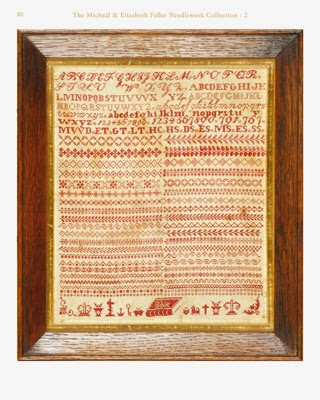 80
The Micheál & Elizabeth Feller Needlework Collection : 2
ABCDEFGHIJKLMNOPQR
STUV W XYZ ABCDEFGHIJK
LMNOPQRSTUVWX YZ ABCDEFGHIJKL
MNOPQRSTUVWXYZ abcdefghiklmnopqrs
tuvwxyz abcdefghijklmnopqrstu v
wxyz 1234567890
MI VV D.ET.GT.LT.HC.HS.DS.ES.MS.ES.SS